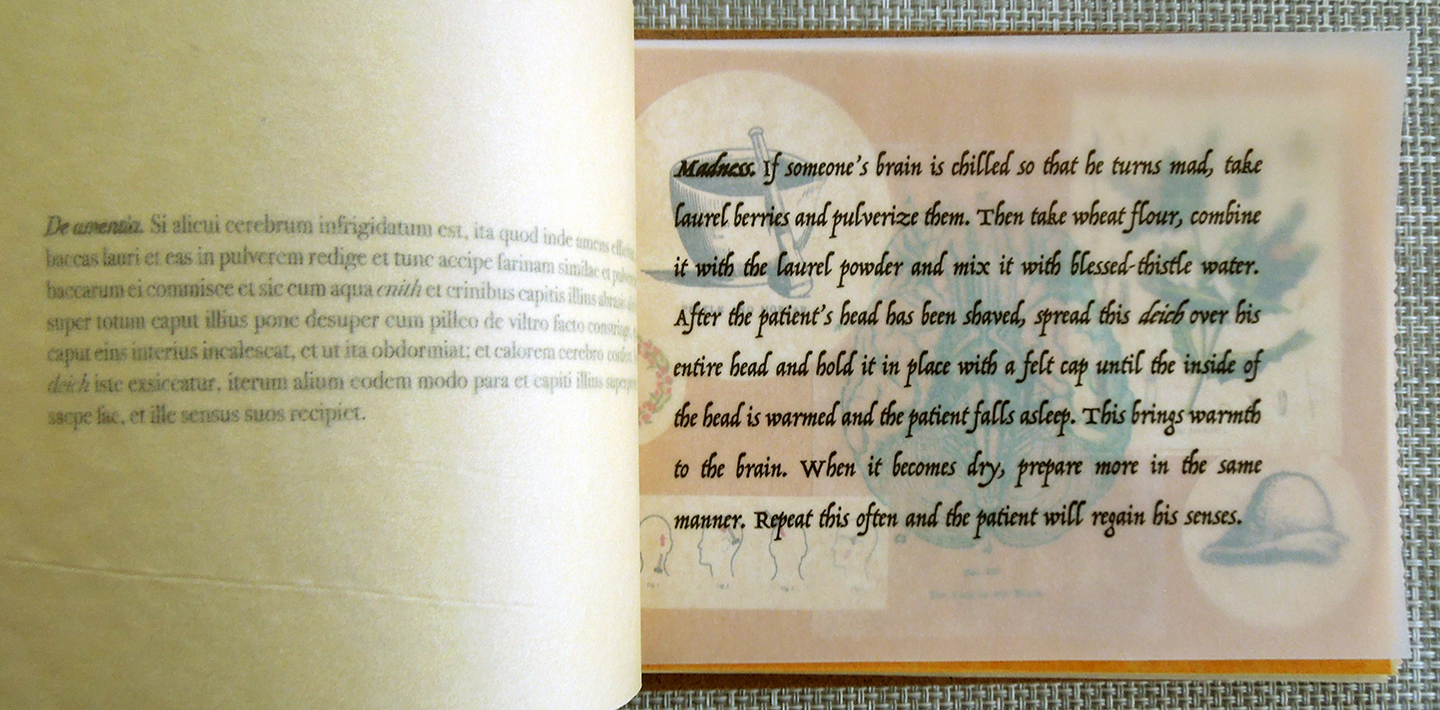 De amentia. Si alicui cerebrum infrigidatum est, ita quod inde amens
baccas lauri et eas in pulverem redige et tunc accipe farinam similae et
baccarum ei commisce et sic cum aqua et crinibus capitis illius
super totum caput illius pone desuper cum pilleo de viltro facto
caput eius interius incalescat, et ut ita obdormiat; et calorem cerebro
deich iste exsiccatur, iterum alium eodem modo para et capiti illius
saepe fac, et ille sensus suos recipiet.
Madness. If someone's brain is chilled so that he turns mad, take
laurel berries and pulverize them. Then take wheat flour, combine
it with the laurel powder and mix it with blessed-thistle water.
After the patient's head has been shaved, spread this deich over his
entire head and hold it in place with a felt cap until the inside of
the head is warmed and the patient falls asleep. This brings warmth
to the brain. When it becomes dry, prepare more in the same
manner. Repeat this often and the patient will regain his senses.